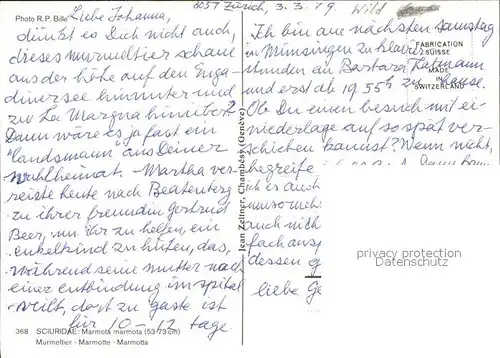 Photo R.P. Bille
8057 Zürich, 3. 3. 79
Liebe Johanna,
dünkt es Dich nicht auch,
dieses murmeltier schaue
aus der höhe auf den Enga-
dinersee hinunter und
zu La Margna hinüber?
Dann wäre es ja fast ein
"landsmann" aus Deiner
wahlheimat. - Martha ver-
reiste heute nach Beatenberg
zu ihrer freundin Gertrud
Beer, um ihr zu helfen, ein
enkelkind zu hüten, das,
während seine mutter nach
einer entbindung im spital
weilt, dort zu gaste ist
für 10 - 12 tage.
368 SCIURIDAE: Marmota marmota (53-73 cm)
Murmeltier - Marmotte - Marmotta
Jean Zellner, Chambésy (Genève)
Wild
Ich bin am nächsten samstag
in Münsingen zu
FABRICATION
SUISSE
stunden an Barbara
MADE
IN
SWITZERLAND
und erst ab 19.55 h zu hause.
Ob Du einen besuch mit ei-
niederlage auf so spät ver-
schieben kannst? Wenn nicht,
begreife
ich es auch
umsomehr
auch nich
fach
dessen g
liebe Ge
privacy protection
watermark